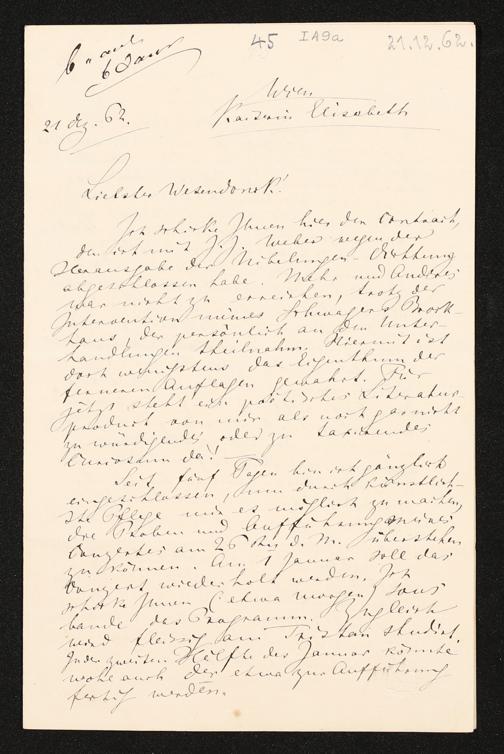 45 IA9a 21.12.62.
6 Janr
Wien
Kaiserin Elisabeth
21 Dez. 62.
Liebster Wesendonck!
Ich schicke Ihnen hier den Contract,
den ich mit J. J. Weber wegen der
Herausgabe der Nibelungen-Dichtung
abgeschlossen habe. Mehr und Anderes
war nicht zu erreichen, trotz der
Intervention meines Schwagers Brock-
haus, der persönlich an den Unter-
handlungen theilnahm. Hiermit ist
doch wenigstens das Eigenthum der
ferneren Auflagen gewahrt. Für
jetzt steht ein poetisches Literatur-
product von mir als noch gar nicht
zu würdigendes oder zu taxirendes
Curiosum da! —
Seit fünf Tagen bin ich gänzlich
eingeschlossen, um durch künstlich-
ste Pflege mir es möglich zu machen,
die Proben und Aufführung meines
Conzertes am 26 d. M. überstehen
zu können. Am 1 Januar soll das
Conzert wiederholt werden. Ich
schicke Ihnen (etwa morgen)
das Programm. Zugleich
wird fleissig am Tristan studirt.
In der zweiten Hälfte des Januar könnte
wohl auch der etwa zur Aufführung
fertig werden.